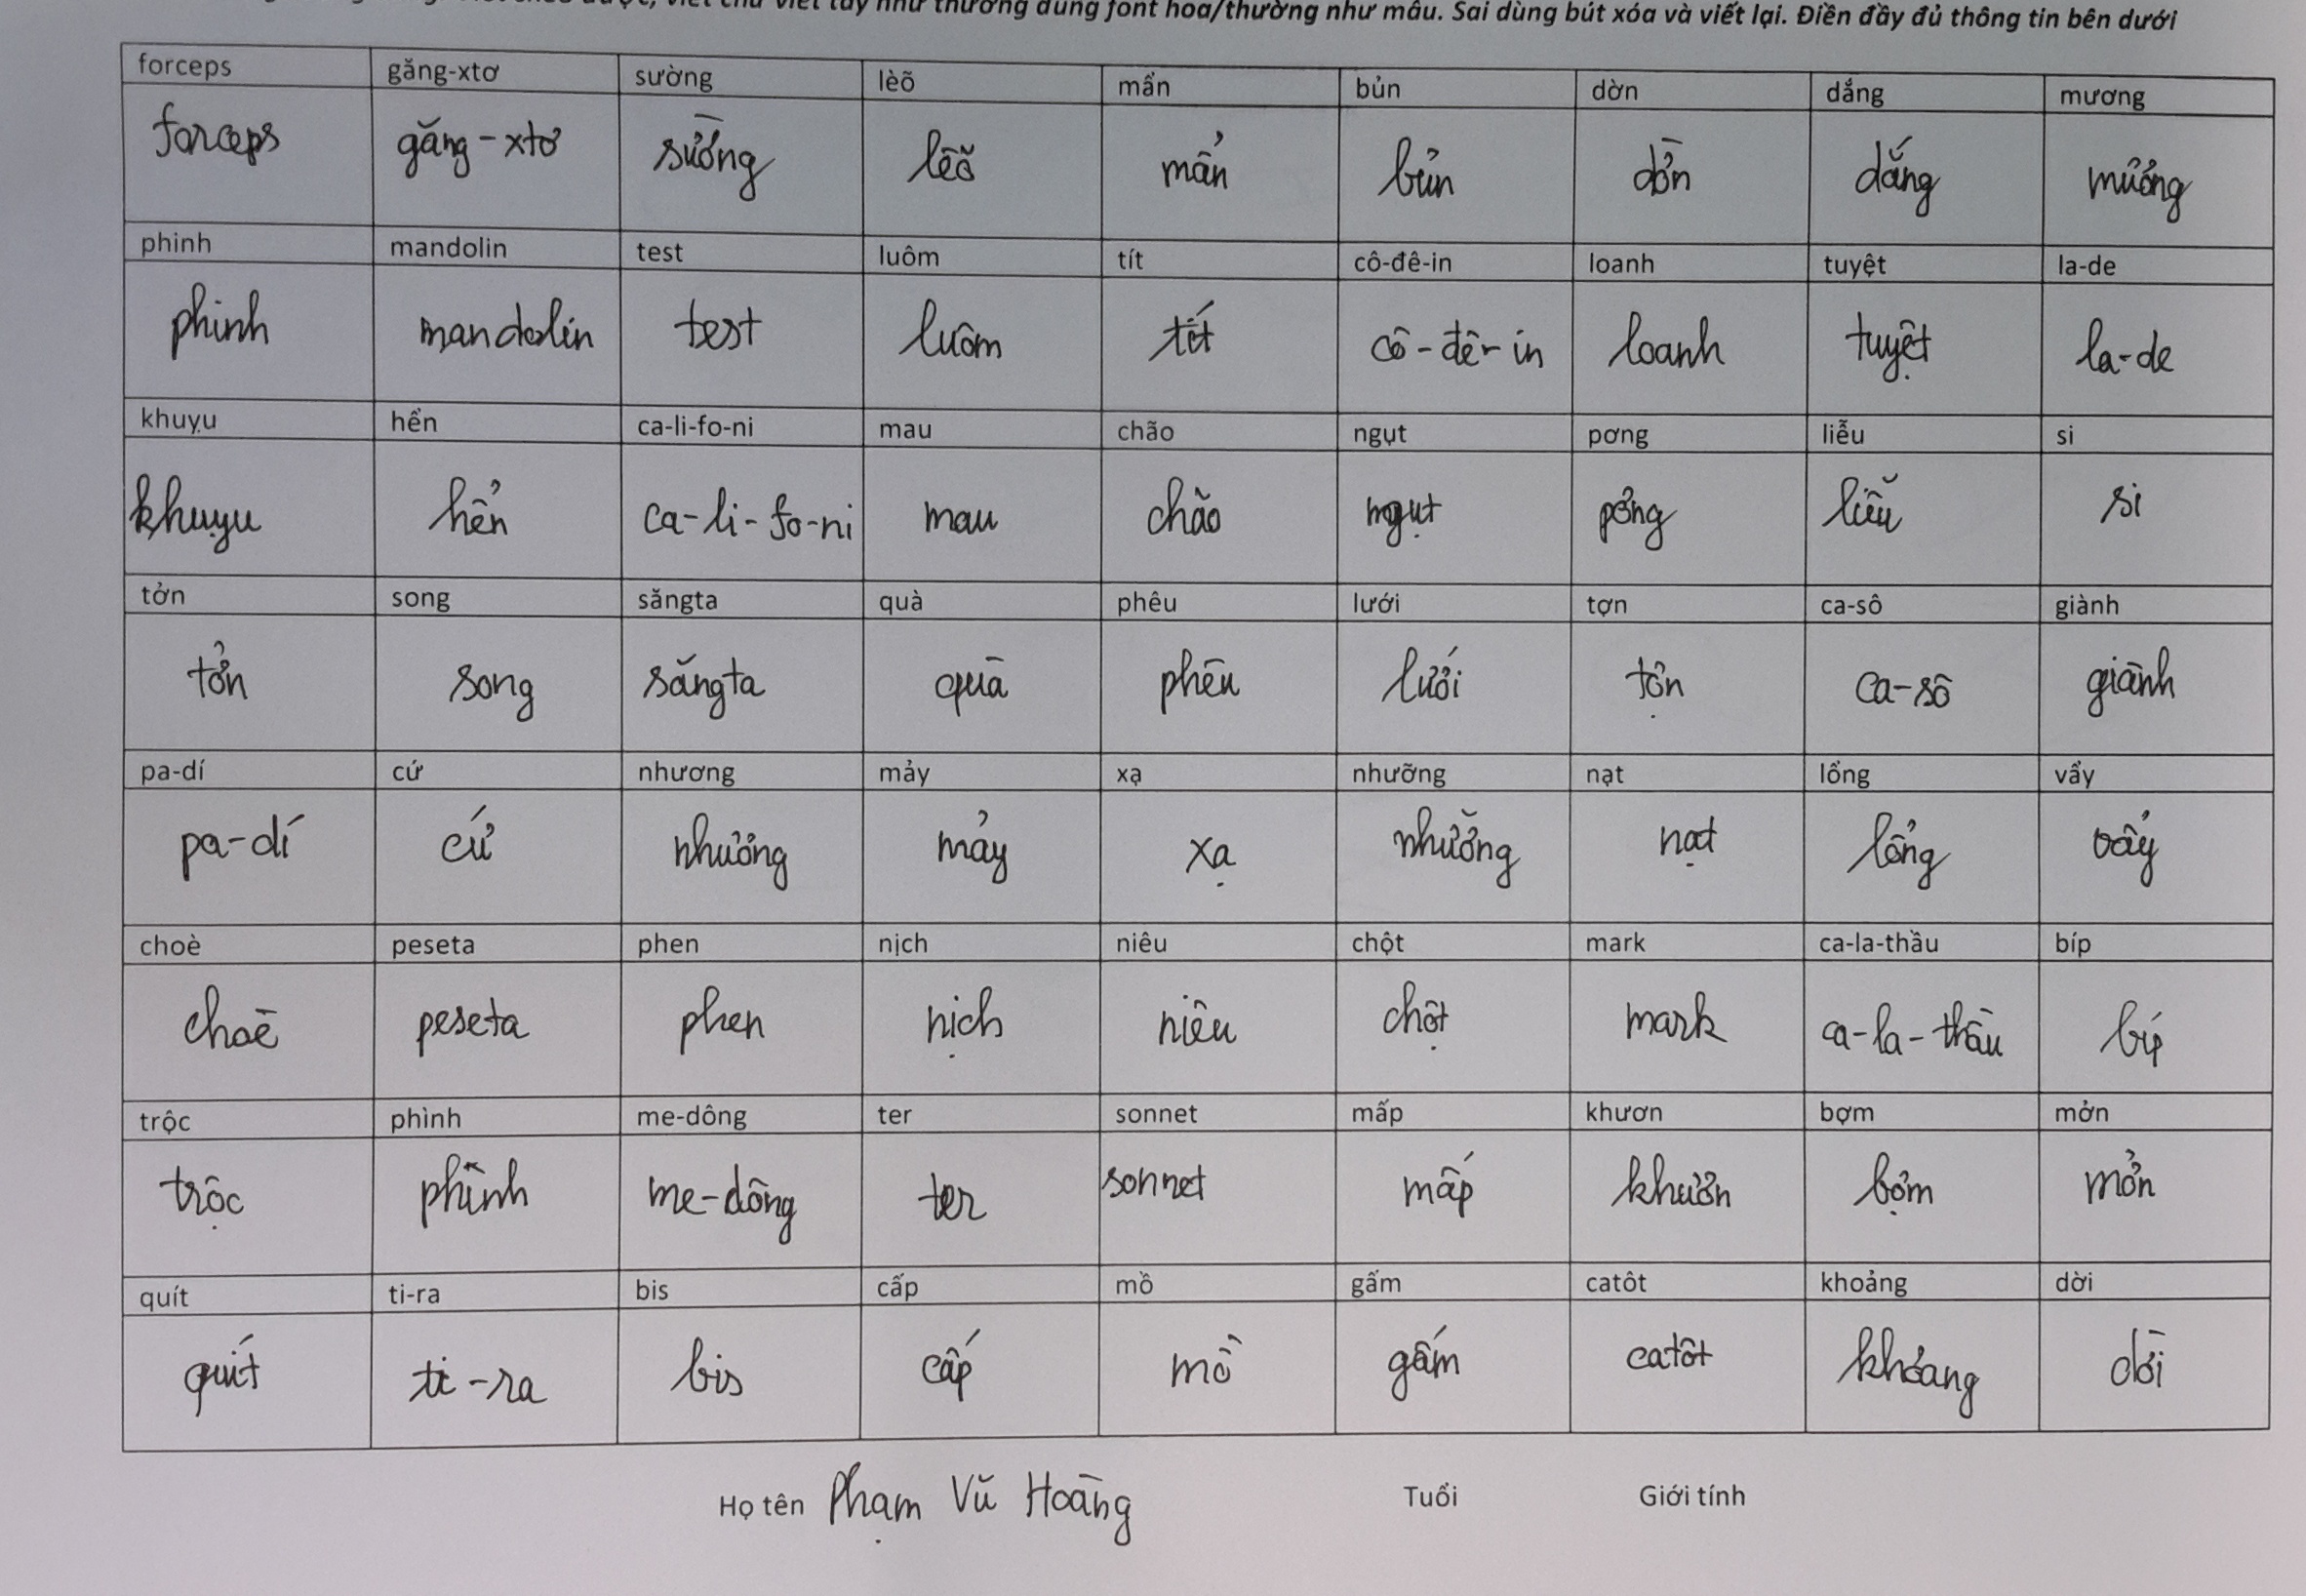 viết chữ viết tay như thường dùng font hoa/thường như mẫu. Sai dùng bút xóa và viết lại. Điền đầy đủ thông tin bên dưới
forceps găng-xtơ sường lèõ mẩn bủn dờn dắng mương
forceps găng-xtơ sường lèõ mẩn bủn dờn dắng mương
phinh mandolin test luôm tít cô-đê-in loanh tuyệt la-de
phinh mandolin test luôm tít cô-đê-in loanh tuyệt la-de
khuỵu hển ca-li-fo-ni mau chão ngụt pơng liễu si
khuỵu hển ca-li-fo-ni mau chão ngụt pơng liễu si
tởn song săngta quà phêu lưới tợn ca-sô giành
tởn song săngta quà phêu lưới tợn ca-sô giành
pa-dí cứ nhương mảy xạ nhưỡng nạt lổng vẩy
pa-dí cứ nhương mảy xạ nhưỡng nạt lổng vẩy
choè peseta phen nịch niêu chột mark ca-la-thầu bíp
choè peseta phen nịch niêu chột mark ca-la-thầu bíp
trộc phình me-dông ter sonnet mấp khươn bợm mởn
trộc phình me-dông ter sonnet mấp khươn bợm mởn
quít ti-ra bis cấp mồ gấm catôt khoảng dời
quít ti-ra bis cấp mồ gấm catôt khỏang dời
Họ tên Phạm Vũ Hoàng Tuổi Giới tính